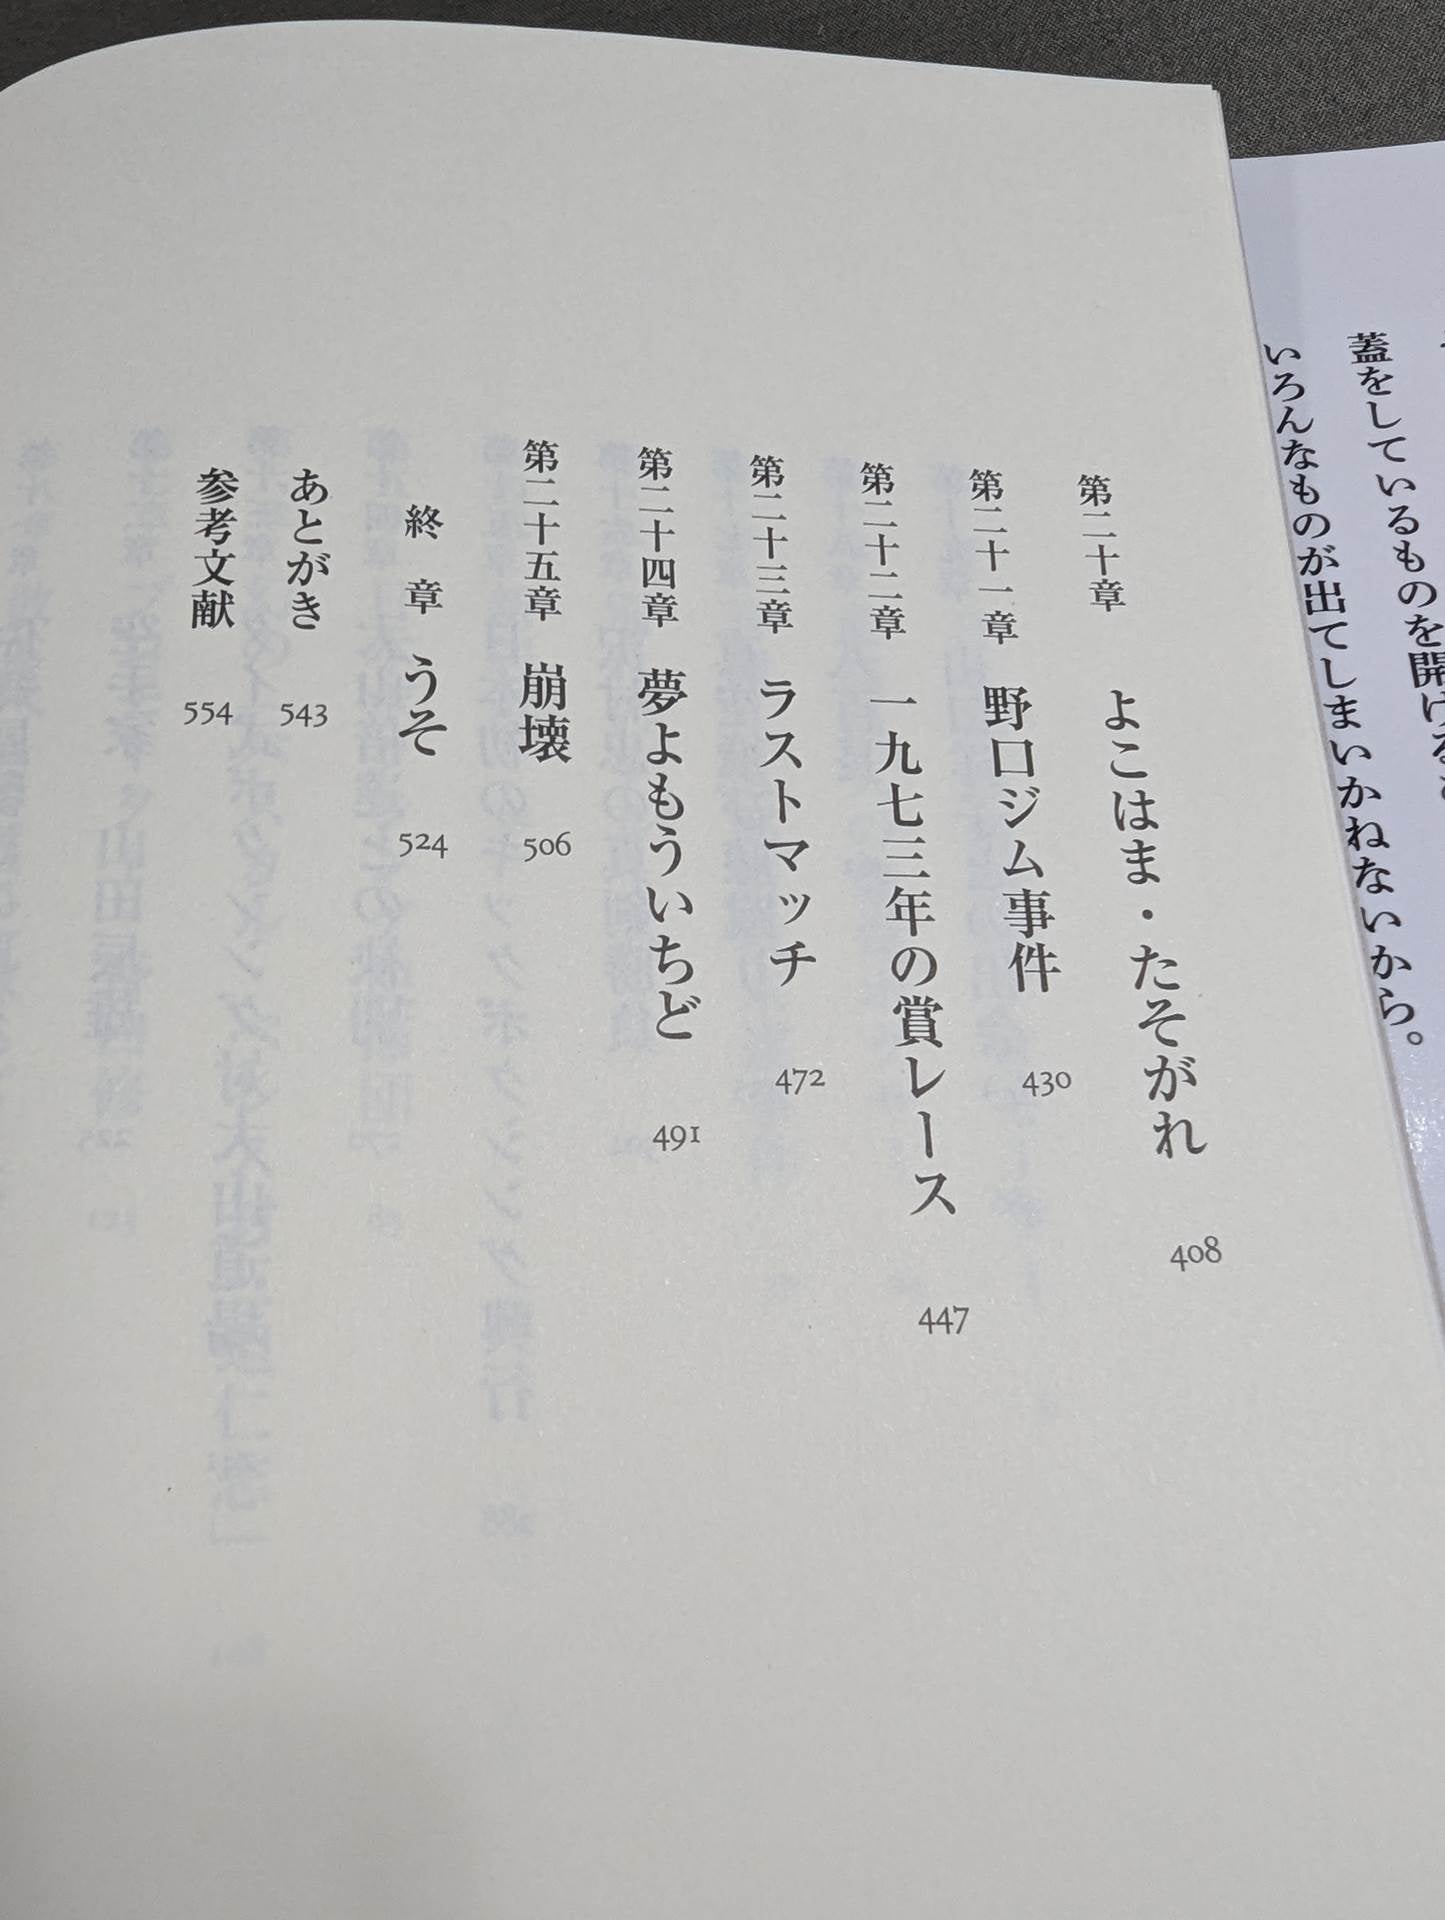 蓋をしているものを開けると
いろんなものが出てしまいかねないから。
第二十章 よこはま・たそがれ 408
第二十一章 野口ジム事件 430
第二十二章 一九七三年の賞レース 447
第二十三章 ラストマッチ 472
第二十四章 夢よもういちど 491
第二十五章 崩壊 506
終章 うそ 524
あとがき 543
参考文献 554